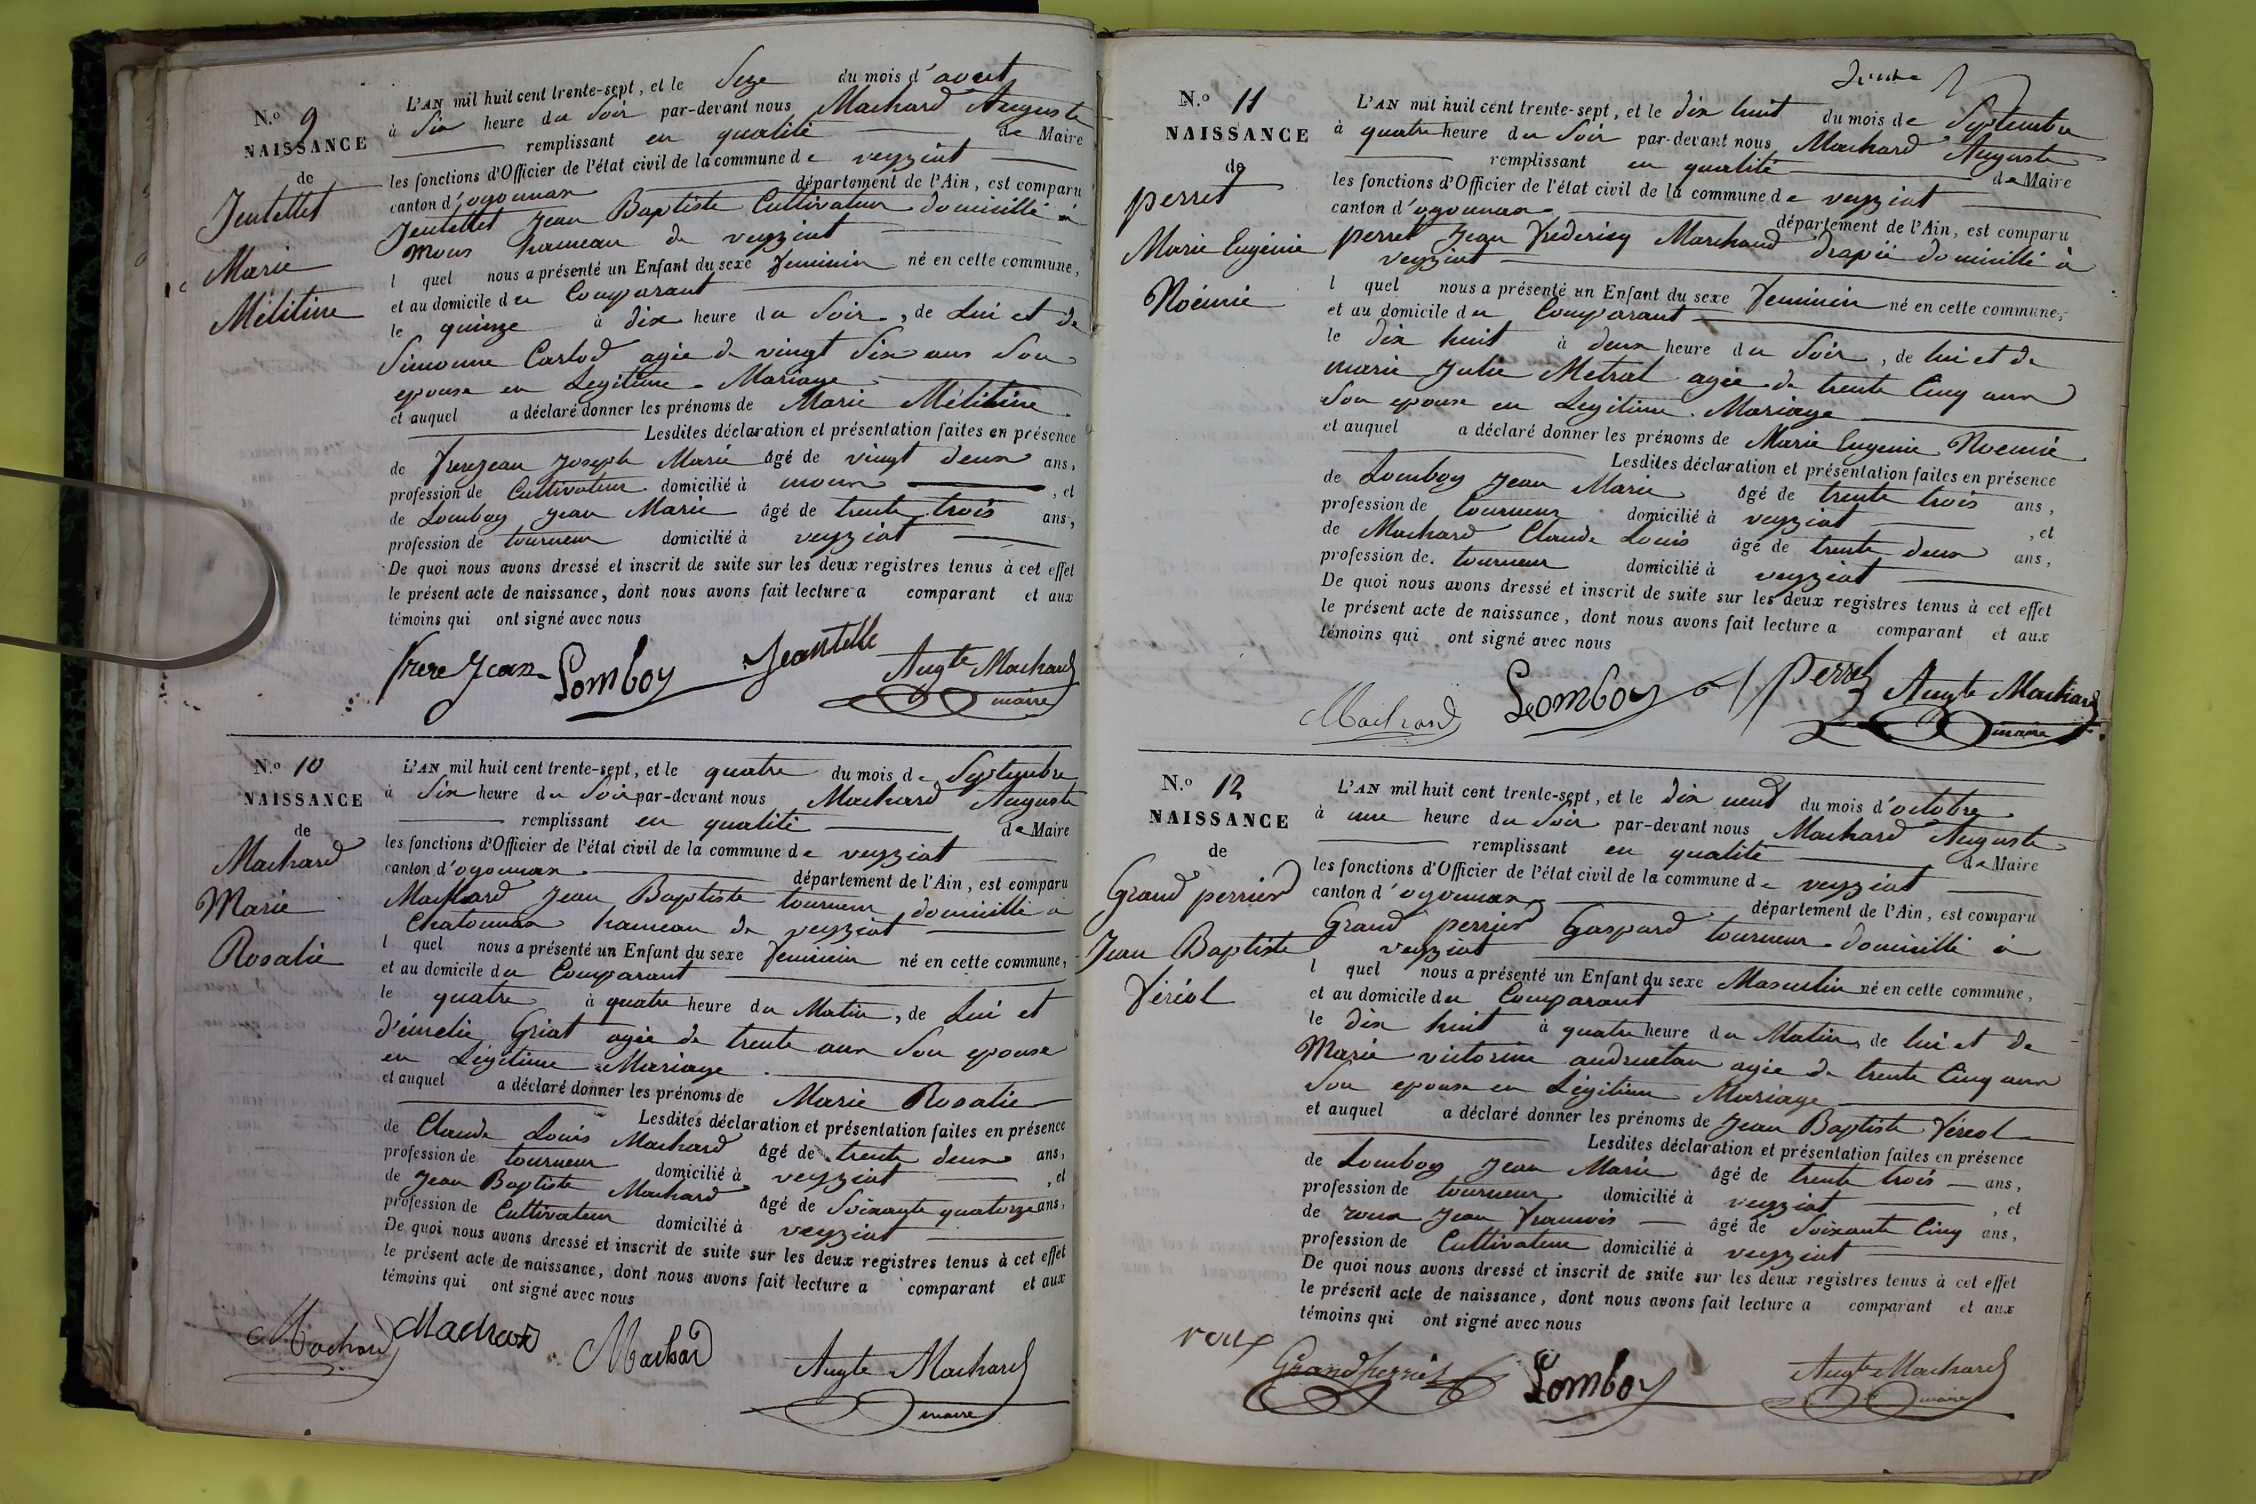 N.º 9
NAISSANCE
de
Jentellet
Marie
Mélitine
L'AN mil huit cent trente-sept, et le Seze du mois d'avout
à Six heure du Soir par-devant nous Machard Auguste
remplissant en qualité de Maire
les fonctions d'Officier de l'état civil de la commune de veyziat
canton d'oyonnax département de l'Ain, est comparu
Jentellet Jean Baptiste Cultivateur domicillié à
mons hameau de veyziat
l quel nous a présenté un Enfant du sexe feminin né en cette commune,
et au domicile du Comparant
le quinze à dix heure du Soir, de Lui et de
Simonne Carlod agée de vingt Six ans Son
epouse en Legitime Mariage
et auquel a déclaré donner les prénoms de Marie Mélitine
Lesdites déclaration et présentation faites en présence
de frerejean joseph Marie âgé de vingt deux ans,
profession de Cultivateur domicilié à mons, et
de Lomboy jean Marie âgé de trente trois ans,
profession de tourneur domicilié à veyziat
De quoi nous avons dressé et inscrit de suite sur les deux registres tenus à cet effet
le présent acte de naissance, dont nous avons fait lecture a comparant et aux
témoins qui ont signé avec nous
frere Jean Lomboy Jeantelle Augte Machard
maire
N.º 10
NAISSANCE
de
Machard
Marie
Rosalie
L'AN mil huit cent trente-sept, et le quatre du mois de Septembre
à Six heure du Soir par-devant nous Machard Auguste
remplissant en qualité de Maire
les fonctions d'Officier de l'état civil de la commune de veyziat
canton d'oyonnax département de l'Ain, est comparu
Machard Jean Baptiste tourneur domicillié à
Chatonnax hameau de veyziat
l quel nous a présenté un Enfant du sexe feminin né en cette commune,
et au domicile du Comparant
le quatre à quatre heure du Matin, de Lui et
d'émelie Griat agée de trente ans Son epouse
en Légitime Mariage
et auquel a déclaré donner les prénoms de Marie Rosalie
Lesdites déclaration et présentation faites en présence
de Claude Louis Machard âgé de trente deux ans,
profession de tourneur domicilié à veyziat, et
de Jean Baptiste Machard âgé de Soixante quatorze ans,
profession de Cultivateur domicilié à veyziat
De quoi nous avons dressé et inscrit de suite sur les deux registres tenus à cet effet
le présent acte de naissance, dont nous avons fait lecture a comparant et aux
témoins qui ont signé avec nous
Machard Machard Machard Augte Machard
maire
N.º 11
NAISSANCE
de
perret
Marie Eugénie
Noémie
L'AN mil huit cent trente-sept, et le dix huit du mois de Septembre
à quatre heure du Soir par-devant nous Machard Auguste
remplissant en qualité de Maire
les fonctions d'Officier de l'état civil de la commune de veyziat
canton d'oyonnax département de l'Ain, est comparu
perret Jean frédéricq Marchand drapié domicillié à
veyziat
l quel nous a présenté un Enfant du sexe feminin né en cette commune,
et au domicile du Comparant
le dix huit à deux heure du Soir, de lui et de
marie Julie Metral agée de trente Cinq ans
Son epouse en Legitime Mariage
et auquel a déclaré donner les prénoms de Marie Eugenie Noemie
Lesdites déclaration et présentation faites en présence
de Lomboy Jean Marie âgé de trente trois ans,
profession de tourneur domicilié à veyziat, et
de Machard Claude Louis âgé de trente deux ans,
profession de tourneur domicilié à veyziat
De quoi nous avons dressé et inscrit de suite sur les deux registres tenus à cet effet
le présent acte de naissance, dont nous avons fait lecture a comparant et aux
témoins qui ont signé avec nous
Machard Lomboy Perret Augte Machard
maire
N.º 12
NAISSANCE
de
Grand perrier
Jean Baptiste
féréol
L'AN mil huit cent trente-sept, et le dix neuf du mois d'octobre
à une heure du Soir par-devant nous Machard Auguste
remplissant en qualité de Maire
les fonctions d'Officier de l'état civil de la commune de veyziat
canton d'oyonnax département de l'Ain, est comparu
Grand perrier Gaspard tourneur domicillié à
veyziat
l quel nous a présenté un Enfant du sexe Masculin né en cette commune,
et au domicile du Comparant
le dix huit à quatre heure du Matin, de lui et de
Marie victorine andruetan agée de trente Cinq ans
Son epouse en Légitime Mariage
et auquel a déclaré donner les prénoms de Jean Baptiste féréol
Lesdites déclaration et présentation faites en présence
de Lomboy Jean Marie âgé de trente trois ans,
profession de tourneur domicilié à veyziat, et
de roux Jean francois âgé de Soixante Cinq ans,
profession de Cultivateur domicilié à veyziat
De quoi nous avons dressé et inscrit de suite sur les deux registres tenus à cet effet
le présent acte de naissance, dont nous avons fait lecture a comparant et aux
témoins qui ont signé avec nous
roux Grandperrier Lomboy Augte Machard
maire